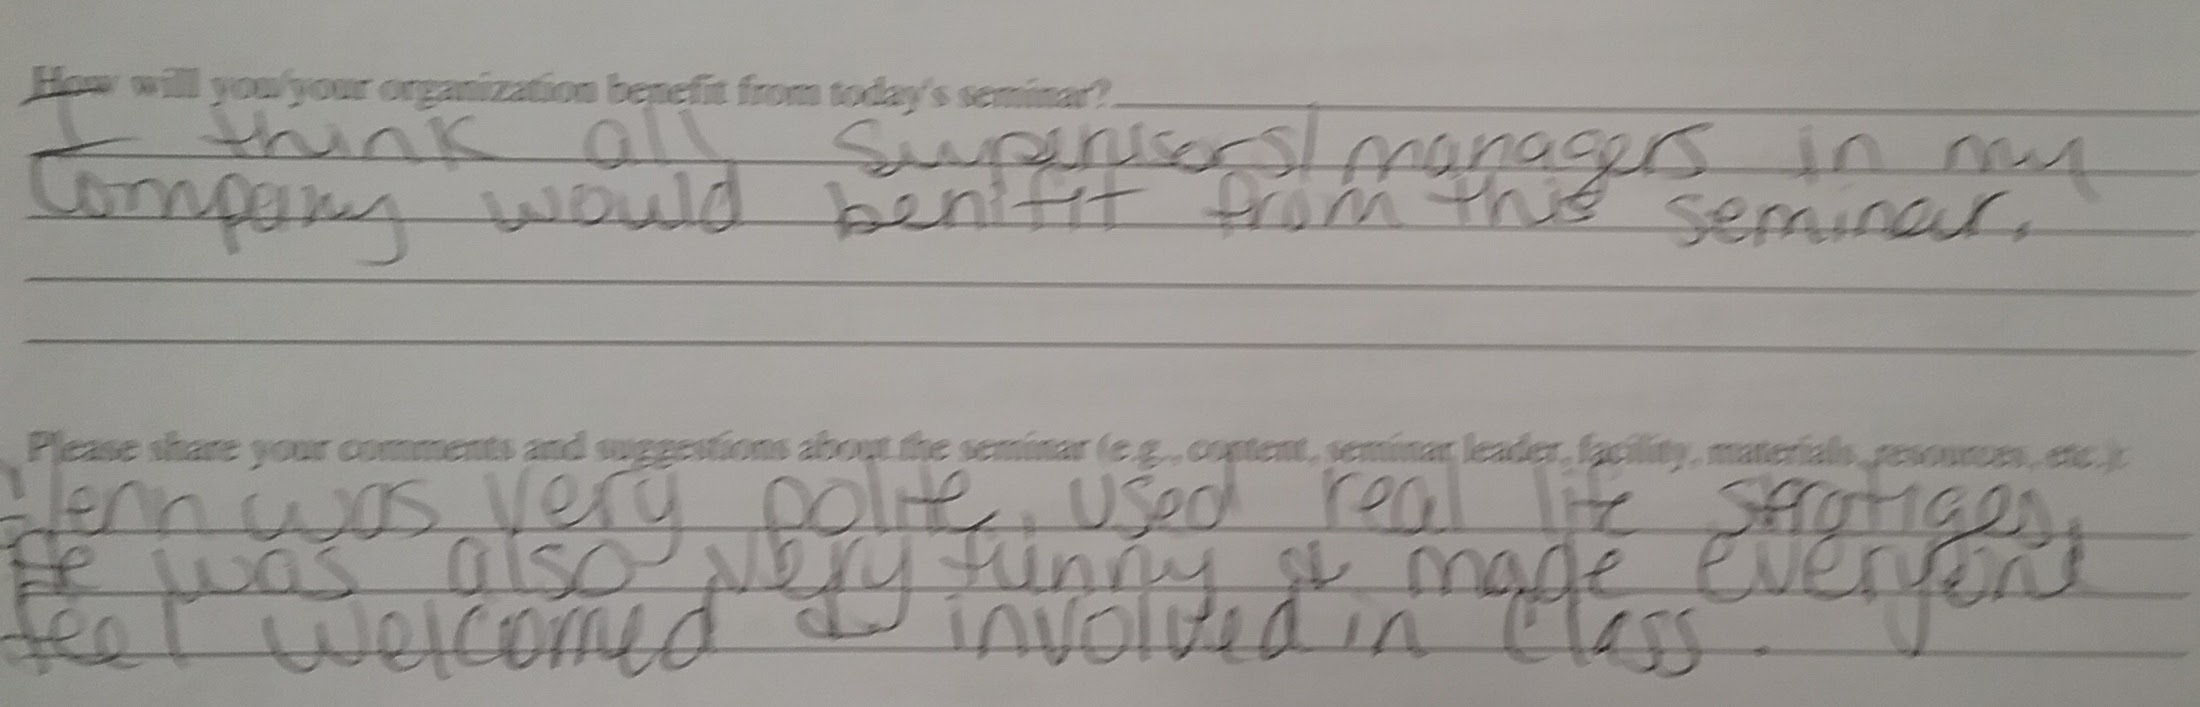 How will you/your organization benefit from today's seminar?
I think all Supervisors/managers in my
Company would benifit from this seminar.
Please share your comments and suggestions about the seminar (e.g., content, seminar leader, facility, materials, resources, etc.):
Glenn was very polite, used real life stratiges,
He was also very funny & made everyone
feel welcomed & involved in class.